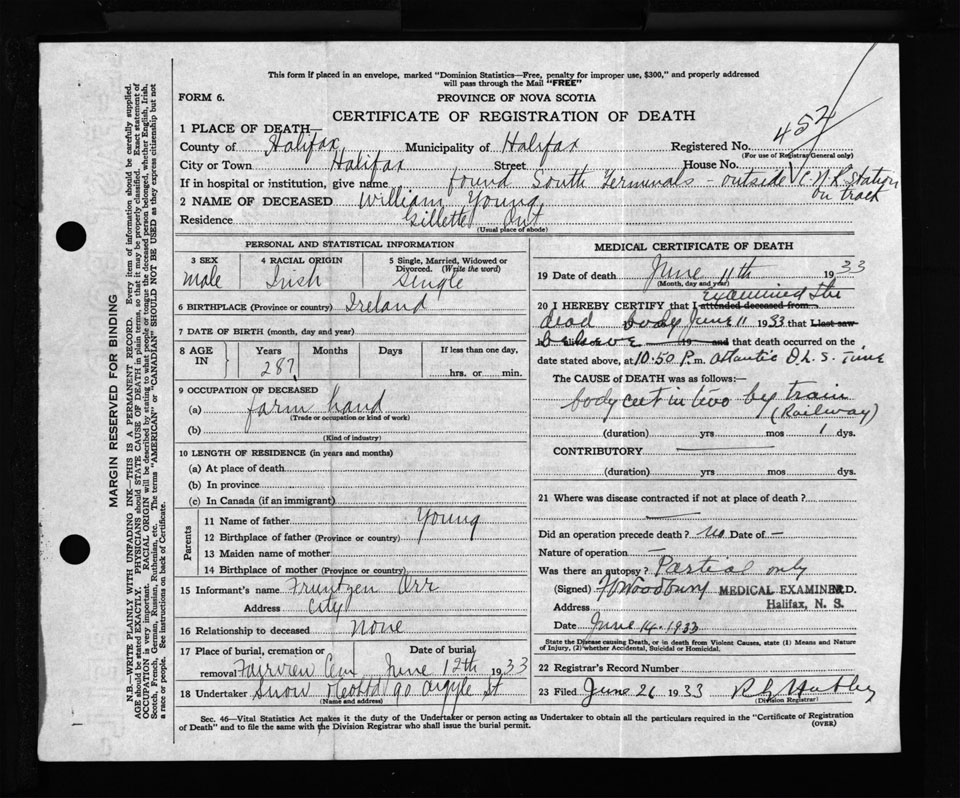 This form if placed in an envelope, marked "Dominion Statistics—Free, penalty for improper use, $300," and properly addressed
will pass through the Mail "FREE"
FORM 6.
PROVINCE OF NOVA SCOTIA
CERTIFICATE OF REGISTRATION OF DEATH
1 PLACE OF DEATH—
County of Halifax Municipality of Halifax Registered No. 452
(For use of Registrar General only)
City or Town Halifax Street House No.
If in hospital or institution, give name found South Terminals - outside C N R Station
on track
2 NAME OF DECEASED William Young
Residence Gillette Ont
(Usual place of abode)
PERSONAL AND STATISTICAL INFORMATION
3 SEX 4 RACIAL ORIGIN 5 Single, Married, Widowed or
Divorced. (Write the word)
male Irish Single
6 BIRTHPLACE (Province or country) Ireland
7 DATE OF BIRTH (month, day and year)
8 AGE IN Years Months Days If less than one day,
28
hrs. or min.
9 OCCUPATION OF DECEASED
(a) farm hand
(Trade or occupation or kind of work)
(b)
(Kind of industry)
10 LENGTH OF RESIDENCE (in years and months)
(a) At place of death
(b) In province
(c) In Canada (if an immigrant)
Parents
11 Name of father Young
12 Birthplace of father (Province or country)
13 Maiden name of mother
14 Birthplace of mother (Province or country)
15 Informant's name Orr
Address City
16 Relationship to deceased None
17 Place of burial, cremation or Date of burial
removal Fairview Cem June 12th 1933
18 Undertaker Snow 90 Argyle St
(Name and address)
MEDICAL CERTIFICATE OF DEATH
19 Date of death June 11th 1933
(Month, day and year)
examined the
20 I HEREBY CERTIFY that I attended deceased from
dead body June 11 1933 that I last saw
19 and that death occurred on the
date stated above, at 10.50 P.m. Atlantic D.L.S. Time
The CAUSE of DEATH was as follows:
body cut in two by train
(Railway)
(duration) yrs mos 1 dys.
CONTRIBUTORY —
(duration) yrs mos dys.
21 Where was disease contracted if not at place of death?
—
Did an operation precede death? no Date of —
Nature of operation —
Was there an autopsy? Partial only
(Signed) Woodbury MEDICAL EXAMINER M.D.
Address Halifax, N. S.
Date June 14-1933
State the Disease causing Death, or in death from Violent Causes, state (1) Means and Nature
of Injury, (2) whether Accidental, Suicidal or Homicidal.
22 Registrar's Record Number
23 Filed June 26 1933
(Division Registrar)
Sec. 46—Vital Statistics Act makes it the duty of the Undertaker or person acting as Undertaker to obtain all the particulars required in the "Certificate of Registration
of Death" and to file the same with the Division Registrar who shall issue the burial permit.
(OVER)
MARGIN RESERVED FOR BINDING
N.B.—WRITE PLAINLY WITH UNFADING INK—THIS IS A PERMANENT RECORD. Every item of information should be carefully supplied.
AGE should be stated EXACTLY. PHYSICIANS should STATE CAUSE OF DEATH in plain terms, so that it may be properly classified. Exact statement of
OCCUPATION is very important. RACIAL ORIGIN will be described by stating to what people or tongue the deceased person belonged, whether English, Irish,
Scotch, French, German, Russian, Ruthenian, etc. The terms "AMERICAN" or "CANADIAN" SHOULD NOT BE USED as they express citizenship but not
a race or people. See instructions on back of Certificate.